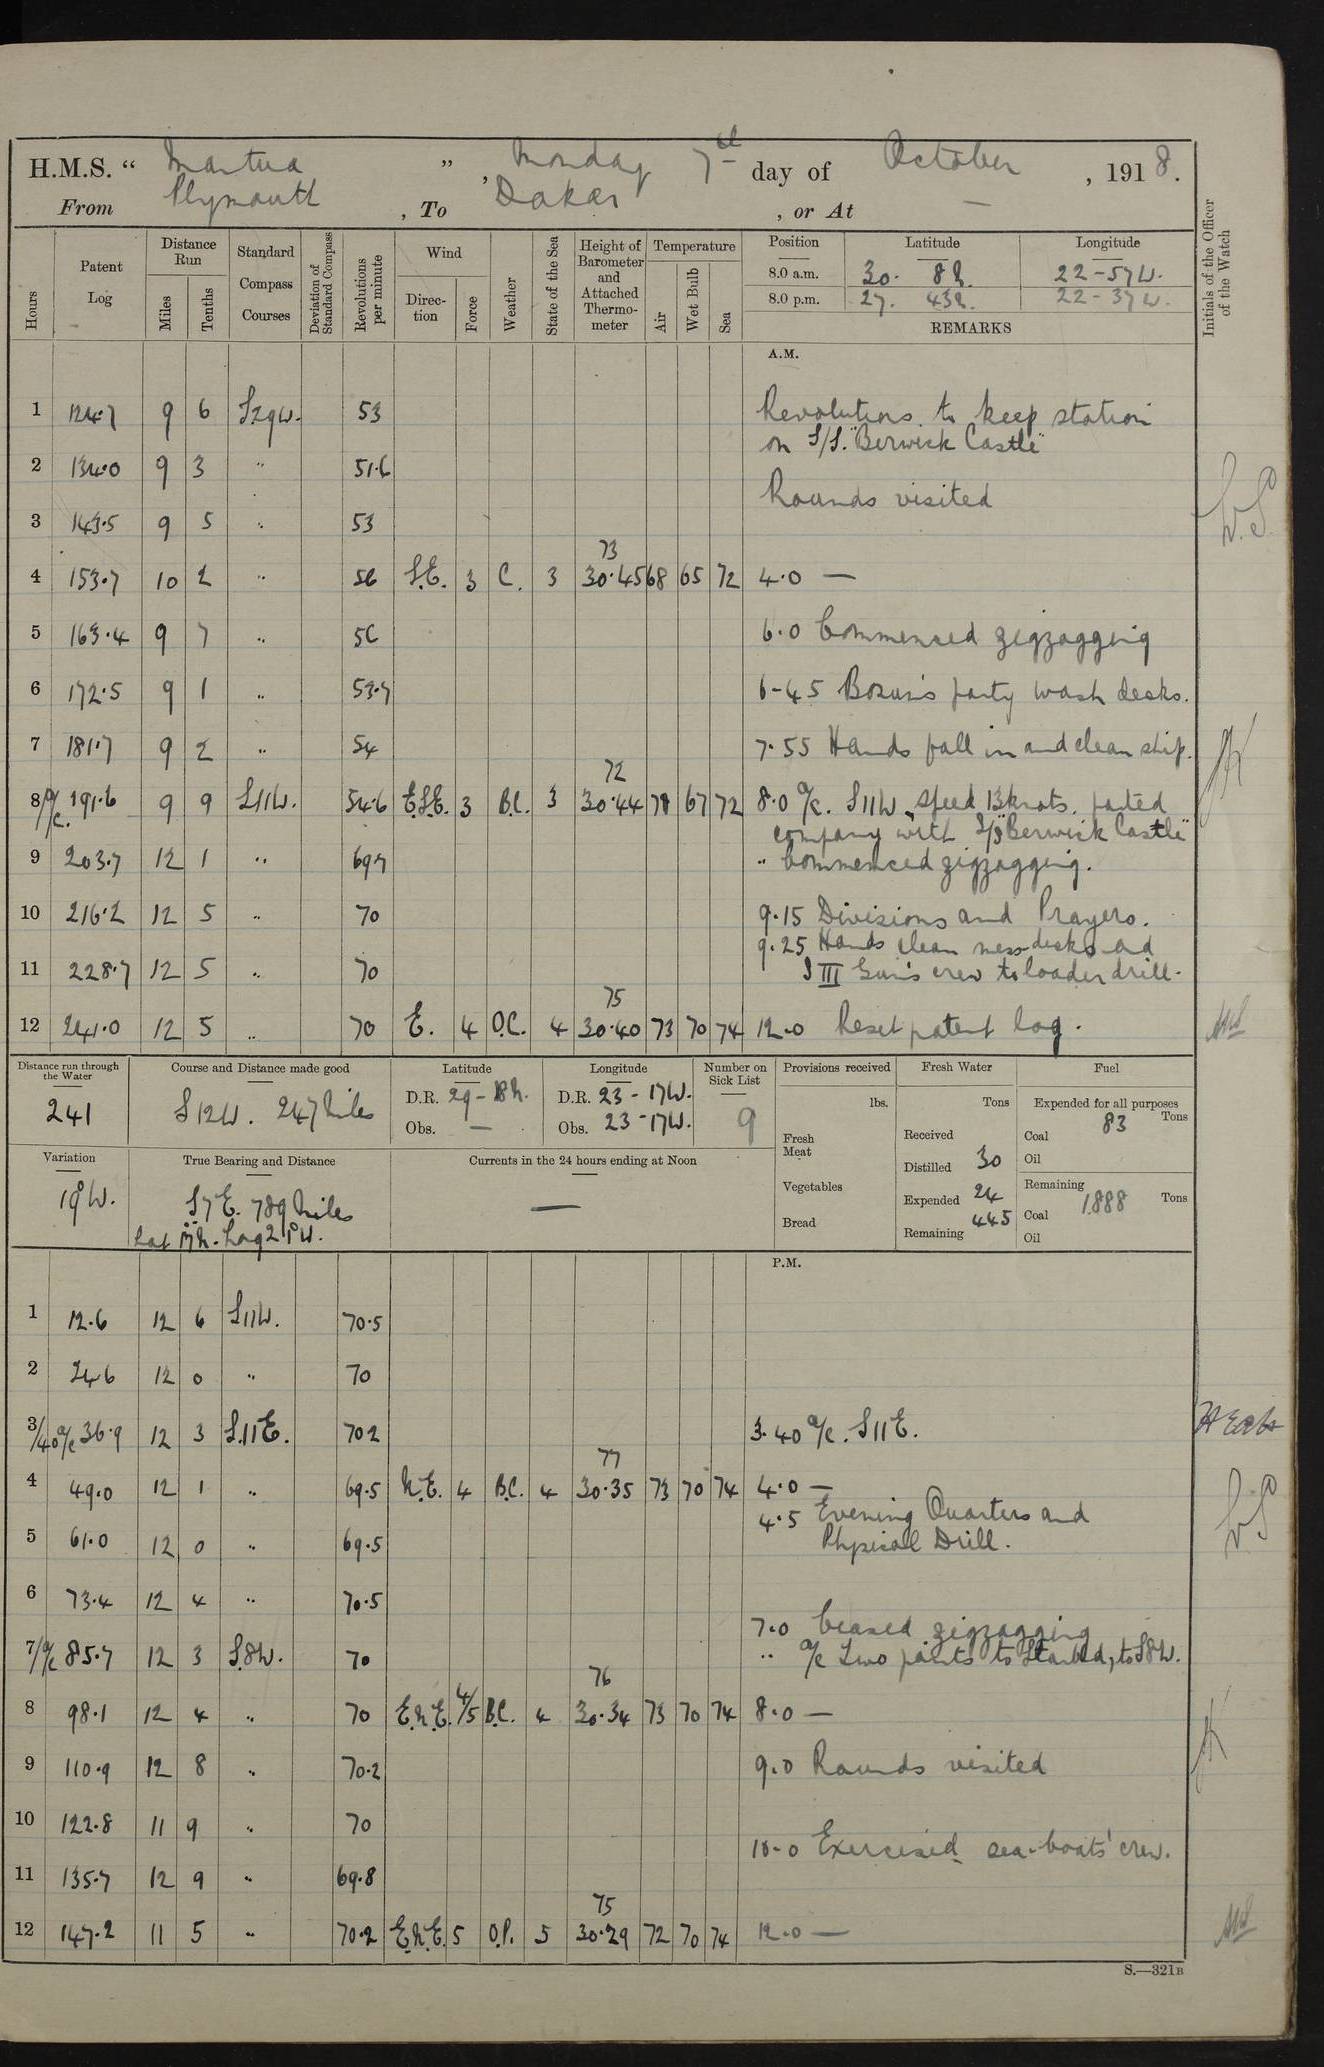 H.M.S. “ Mantua ”, Monday 7th day of October, 1918.
From Plymouth, To Dakar, or At —
Hours
Patent Log
Distance Run
Miles
Tenths
Standard Compass Courses
Deviation of Standard Compass
Revolutions per minute
Wind
Direction
Force
Weather
State of the Sea
Height of Barometer and Attached Thermometer
Temperature
Air
Wet Bulb
Sea
Position Latitude Longitude
8.0 a.m. 30. 8 N. 22-57 W.
8.0 p.m. 27. 43 N. 22-37 W.
REMARKS
Initials of the Officer of the Watch
A.M.
1 124.7 9 6 S29W. 53 Revolutions to keep station
on S/S. "Berwick Castle"
2 134.0 9 3 " 51.6
Rounds visited
3 143.5 9 5 " 53
73
4 153.7 10 2 " 56 S.E. 3 C. 3 30.45 68 65 72 4.0 —
5 163.4 9 7 " 56 6.0 Commenced zigzagging
6 172.5 9 1 " 53.7 6-45 Bosun's party wash decks.
7 181.7 9 2 " 54 7.55 Hands fall in and clean ship.
72
8 a/c. 191.6 9 9 S11W. 54.6 E.S.E. 3 B.C. 3 30.44 78 67 72 8.0 a/c. S11W, speed 13 knots. parted
company with S/S "Berwick Castle"
9 203.7 12 1 " 69.7 " Commenced zigzagging.
10 216.2 12 5 " 70 9.15 Divisions and Prayers.
9.25 Hands clean mess-decks and
11 228.7 12 5 " 70 S III Gun's crew to loader drill.
75
12 241.0 12 5 " 70 E. 4 O.C. 4 30.40 73 70 74 12.0 Reset patent log.
Distance run through the Water
241
Course and Distance made good
S12W. 247 Miles
Latitude
D.R. 29-18 N.
Obs. —
Longitude
D.R. 23-17W.
Obs. 23-17W.
Number on Sick List
9
Provisions received
lbs.
Fresh Meat
Vegetables
Bread
Fresh Water
Tons
Received
Distilled 30
Expended 24
Remaining 445
Fuel
Expended for all purposes
Tons
Coal 83
Oil
Remaining
Coal 1888 Tons
Oil
Variation
19°W.
True Bearing and Distance
S7E. 789 Miles
Currents in the 24 hours ending at Noon
—
P.M.
1 12.6 12 6 S11W. 70.5
2 24.6 12 0 " 70
3/40 a/c 36.9 12 3 S.11E. 70.2 3.40 a/c. S11E.
77
4 49.0 12 1 " 69.5 N.E. 4 B.C. 4 30.35 73 70 74 4.0 —
4.5 Evening Quarters and
5 61.0 12 0 " 69.5 Physical Drill.
6 73.4 12 4 " 70.5
7.0 Ceased zigzagging
7/a/c 85.7 12 3 S.8W. 70 " a/c two points to Starbd, to S8W.
76
8 98.1 12 4 " 70 E.N.E. 4/5 B.C. 4 30.34 73 70 74 8.0 —
9 110.9 12 8 " 70.2 9.0 Rounds visited
10 122.8 11 9 " 70
10.0 Exercised sea-boats' crew.
11 135.7 12 9 " 69.8
75
12 147.2 11 5 " 70.2 E.N.E. 5 O.P. 5 30.29 72 70 74 12.0 —
S.—321B